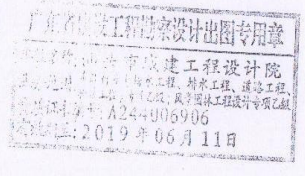 广东省建设工程勘察设计出图专用章
名称:山市城建工程设计院
水工程、排水工程、道路工程、
乙级;风景园林工程设计专项乙级
证书编号:A244006906
有效期至:2019年06月11日